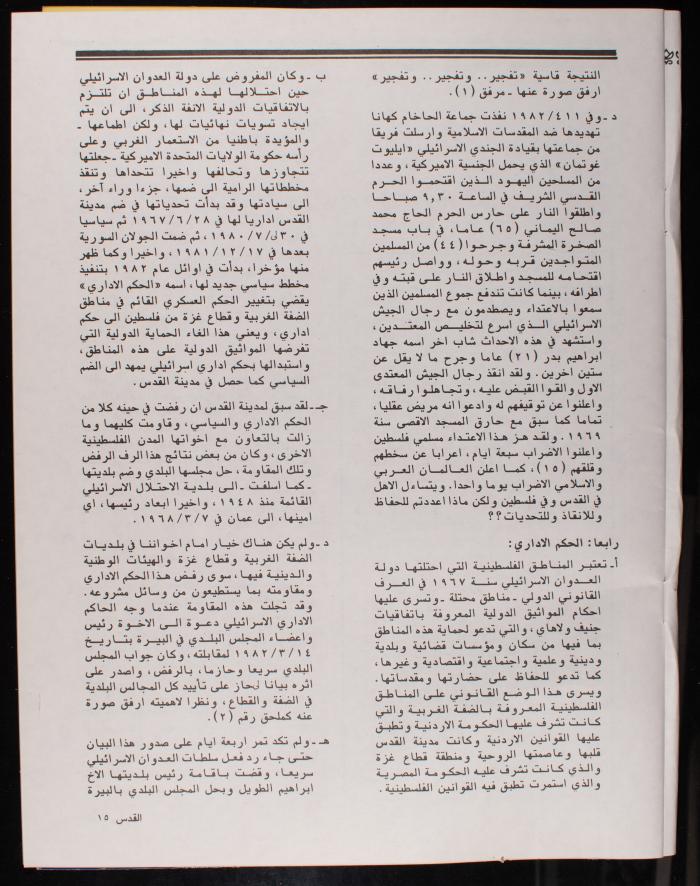 النتيجة قاسية «تفجير.. وتفجير.. وتفجير»
ارفق صورة عنها ـ مرفق (١).
د ـ وفي ١٩٨٢/٤١١ نفذت جماعة الحاخام كهانا
تهديدها ضد المقدسات الاسلامية وارسلت فريقا
من جماعتها بقيادة الجندي الاسرائيلي «ايليوت
غوتمان» الذي يحمل الجنسية الاميركية، وعددا
من المسلحين اليهود الذين اقتحموا الحرم
القدسي الشريف في الساعة ٩,٣٠ صباحا
واطلقوا النار على حارس الحرم الحاج محمد
صالح اليماني (٦٥) عاما، في باب مسجد
الصخرة المشرفة وجرحوا (٤٤) من المسلمين
المتواجدين قربه وحوله، وواصل رئيسهم
اقتحامه للمسجد واطلاق النار على قبته وفي
اطرافه، بينما كانت تندفع جموع المسلمين الذين
سمعوا بالاعتداء ويصطدمون مع رجال الجيش
الاسرائيلي الذي اسرع لتخليص المعتدين،
واستشهد في هذه الاحداث شاب اخر اسمه جهاد
ابراهيم بدر (٢١) عاما وجرح ما لا يقل عن
ستين اخرين. ولقد انقذ رجال الجيش المعتدى
الاول والقوا القبض عليه، وتجاهلوا رفاقه،
واعلنوا عن توقيفهم له وادعوا انه مريض عقليا،
تماما كما سبق مع حارق المسجد الاقصى سنة
١٩٦٩. ولقد هز هذا الاعتداء مسلمي فلسطين
واعلنوا الاضراب سبعة ايام، اعرابا عن سخطهم
وقلقهم (١٥)، كما اعلن العالمان العربي
والاسلامي الاضراب يوما واحدا. ويتساءل الاهل
في القدس وفي فلسطين ولكن ماذا اعددتم للحفاظ
وللانقاذ وللتحديات؟؟
رابعا: الحكم الاداري:
أ ـ تعتبر المناطق الفلسطينية التي احتلتها دولة
العدوان الاسرائيلي سنة ١٩٦٧ في العرف
القانوني الدولي ـ مناطق محتلة ـ وتسرى عليها
احكام المواثيق الدولية المعروفة باتفاقيات
جنيف ولاهاي، والتي تدعو لحماية هذه المناطق
بما فيها من سكان ومؤسسات قضائية وبلدية
ودينية وعلمية واجتماعية واقتصادية وغيرها،
كما تدعو للحفاظ على حضارتها ومقدساتها.
ويسرى هذا الوضع القانوني على المناطق
الفلسطينية المعروفة بالضفة الغربية والتي
كانت تشرف عليها الحكومة الاردنية وتطبق
عليها القوانين الاردنية وكانت مدينة القدس
قلبها وعاصمتها الروحية ومنطقة قطاع غزة
والذي كانت تشرف عليه الحكومة المصرية
والذي استمرت تطبق فيه القوانين الفلسطينية.
ب ـ وكان المفروض على دولة العدوان الاسرائيلي
حين احتلالها لهذه المناطق ان تلتزم
بالاتفاقيات الدولية الانفة الذكر، الى ان يتم
ايجاد تسويات نهائيات لها، ولكن اطماعها ـ
والمؤيدة باطنيا من الاستعمار الغربي وعلى
رأسه حكومة الولايات المتحدة الاميركية ـ جعلتها
تتجاوزها وتحالفها واخيرا تتحداها وتنفذ
مخططاتها الرامية الى ضمها، جزءا وراء آخر،
الى سيادتها وقد بدأت تحدياتها في ضم مدينة
القدس اداريا لها في ١٩٦٧/٦/٢٨ ثم سياسيا
في ٣٠لى/١٩٨٠/٧، ثم ضمت الجولان السورية
بعدها في ١٩٨١/١٢/١٧، واخيرا وكما ظهر
منها مؤخرا، بدأت في اوائل عام ١٩٨٢ بتنفيذ
مخطط سياسي جديد لها، اسمه «الحكم الاداري»
يقضي بتغيير الحكم العسكري القائم في مناطق
الضفة الغربية وقطاع غزة من فلسطين الى حكم
اداري، ويعني هذا الغاء الحماية الدولية التي
تفرضها المواثيق الدولية على هذه المناطق،
واستبدالها بحكم اداري اسرائيلي يمهد الى الضم
السياسي كما حصل في مدينة القدس.
جـ ـ لقد سبق لمدينة القدس ان رفضت في حينه كلا من
الحكم الاداري والسياسي، وقاومت كليهما وما
زالت بالتعاون مع اخواتها المدن الفلسطينية
الاخرى، وكان من بعض نتائج هذا الرف الرفض
وتلك المقاومة، حل مجلسها البلدي وضم بلديتها
ـ كما اسلفت ـ الى بلدية الاحتلال الاسرائيلي
القائمة منذ ١٩٤٨، واخيرا ابعاد رئيسها، اي
امينها، الى عمان في ١٩٦٨/٣/٧.
د ـ ولم يكن هناك خيار امام اخواننا في بلديات
الضفة الغربية وقطاع غزة والهيئات الوطنية
والدينية فيها، سوى رفض هذا الحكم الاداري
ومقاومته بما يستطيعون من وسائل مشروعه.
وقد تجلت هذه المقاومة عندما وجه الحاكم
الاداري الاسرائيلي دعوة الى الاخوة رئيس
واعضاء المجلس البلدي في البيرة بتاريخ
١٩٨٢/٣/١٤ لمقابلته، وكان جواب المجلس
البلدي سريعا وحازما، بالرفض، واصدر على
اثره بيانا لحاز على تأييد كل المجالس البلدية
في الضفة والقطاع، ونظرا لاهميته ارفق صورة
عنه كملحق رقم (٢).
هـ ـ ولم تكد تمر اربعة ايام على صدور هذا البيان
حتى جاء رد فعل سلطات العدوان الاسرائيلي
سريعا، وقضت باقامة رئيس بلديتها الاخ
ابراهيم الطويل وبحل المجلس البلدي بالبيرة
القدس ١٥